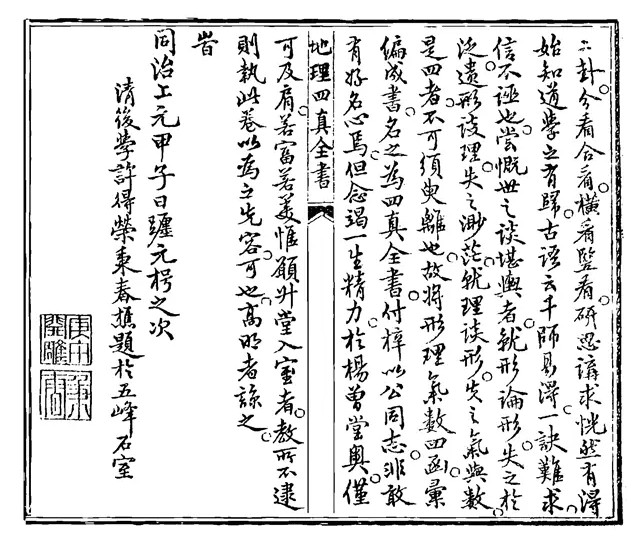 二卦分看合看橫看豎看研思講求恍然有淂
始知道學之有歸古語云千師易淂一訣難求
信不誣也嘗慨世之談堪輿者就形論形失之於
泛遺形談理失之渺茫就理談形失之氣與數
是四者不可須臾離也故將形理氣數四函彙
編成書名之為四真全書付梓以公同志非敢
有好名心焉但念竭一生精力於楊曾堂奧僅
地理四真全書
可及肩若富若美惟願升堂入室者教所不逮
則執此卷以為立先容可也高明者諒之
旹
同治上元甲子日躔元枵之次
清後學許得榮東春樵題於五峰石室